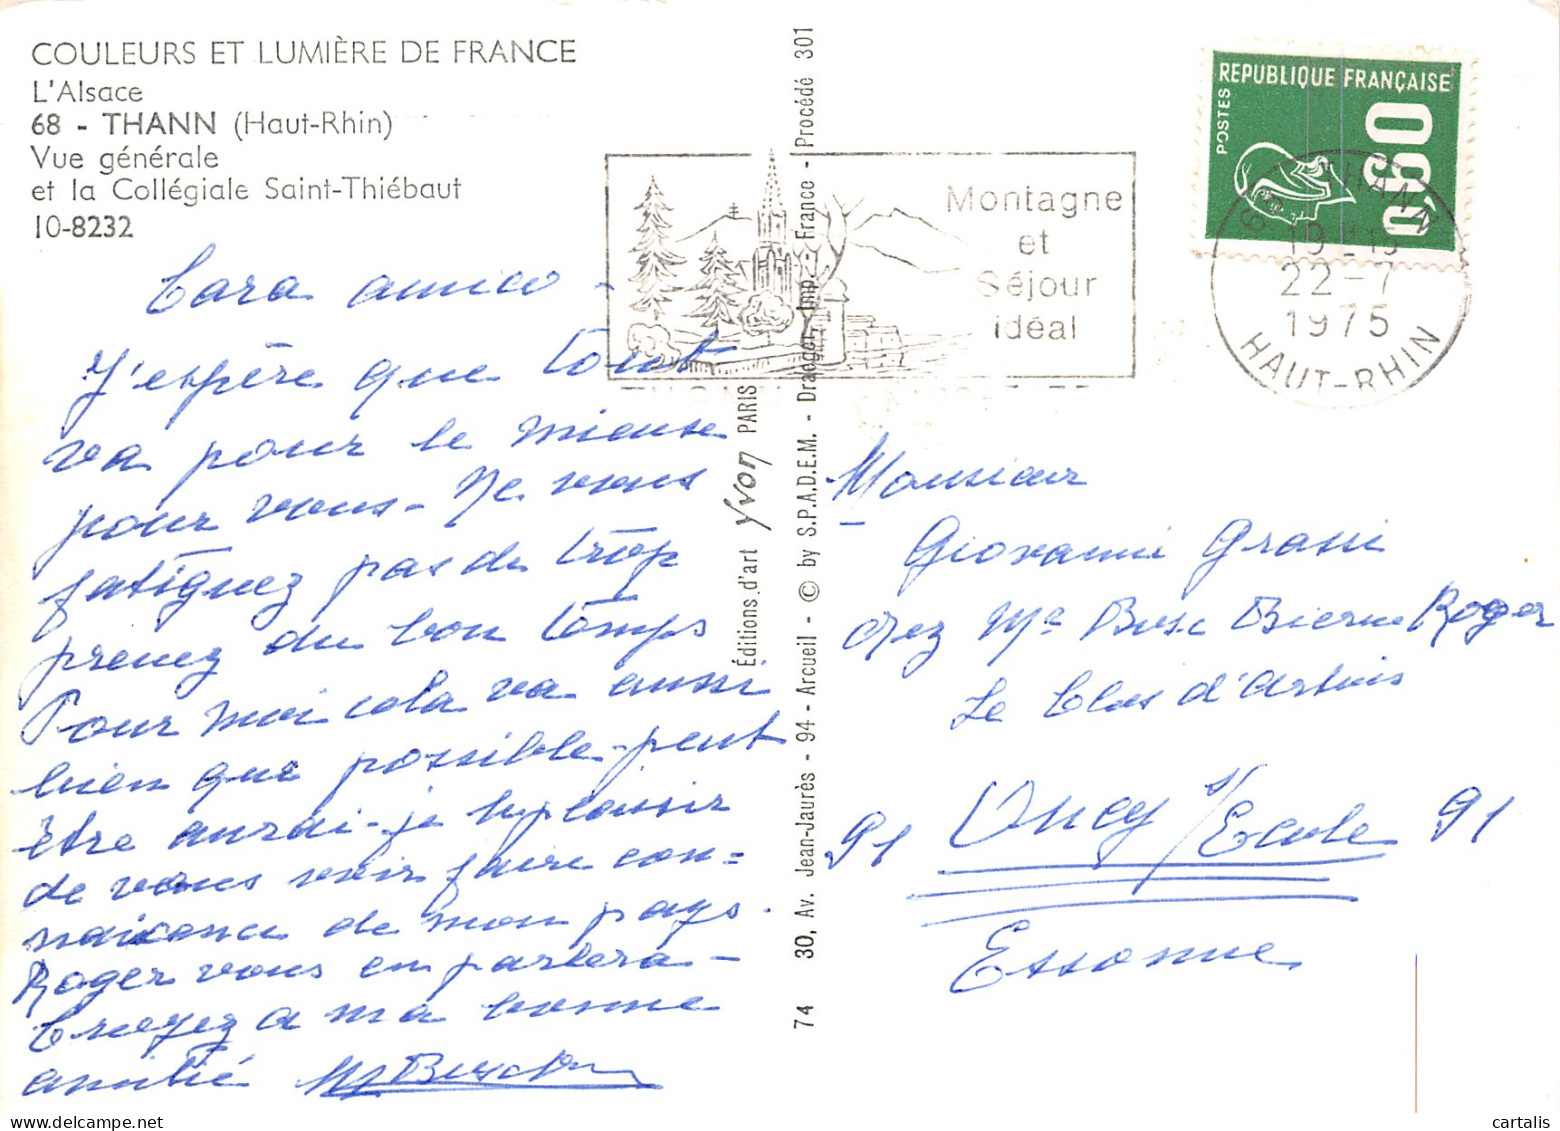 COULEURS ET LUMIÈRE DE FRANCE
L'Alsace
68 - THANN (Haut-Rhin)
Vue générale
et la Collégiale Saint-Thiébaut
10-8232
Cara amico -
J'espère que tout
va pour le mieux
pour vous - Ne vous
fatiguez pas de trop
prenez du bon temps
Pour moi cela va aussi
bien que possible - peut
être aurai-je le plaisir
de vous voir faire con=
naissance de mon pays.
Roger vous en parlera -
Croyez à ma bonne
amitié
Montagne
et
Séjour
idéal
REPUBLIQUE FRANÇAISE
POSTES
0,60
68 THANN
22-7
1975
HAUT-RHIN
74 30, Av. Jean-Jaurès - 94 - Arcueil - © by S.P.A.D.E.M. - Draeger, Imp. - France - Procédé 301
Éditions d'art Yvon PARIS
Monsieur
Giovanni Grassi
chez Mr Roger
Le Clos d'
91 Oncy s/Ecole 91
Essonne
cartalis